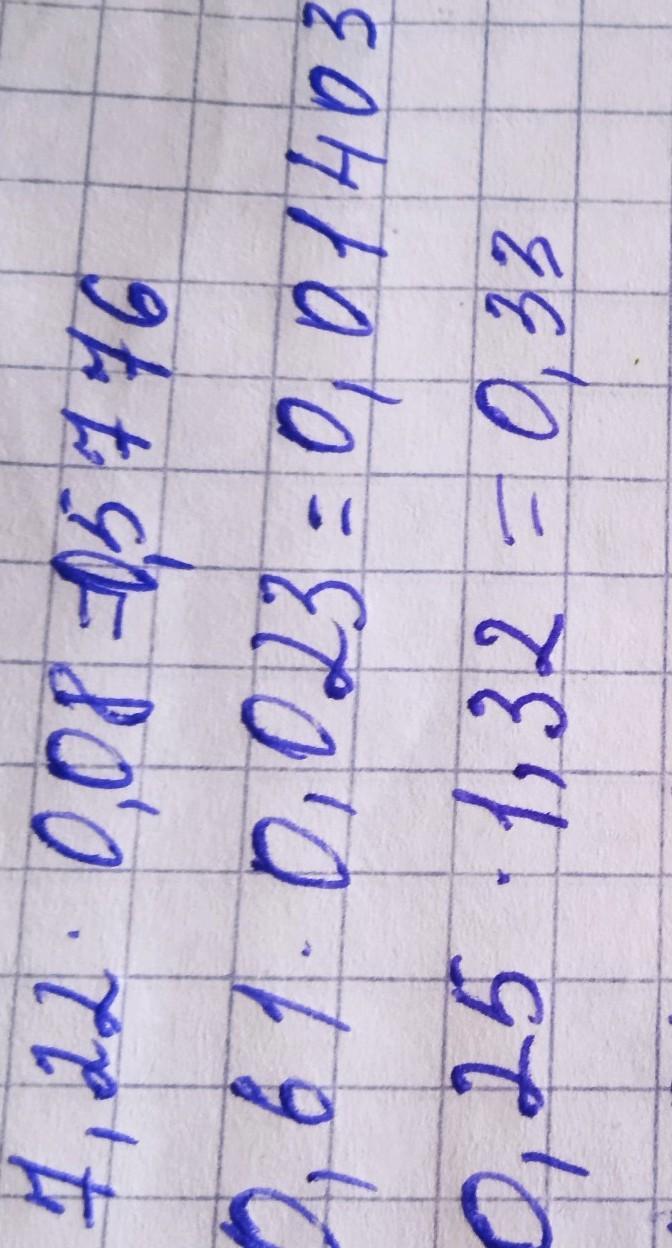 7,22 · 0,08 = 0,5776
0,61 · 0,023 = 0,01403
0,25 · 1,32 = 0,33